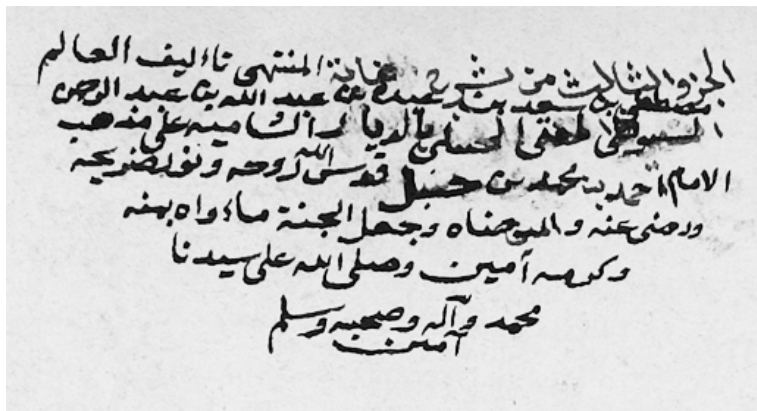 الجزء الثالث من شرح غاية المنتهى تاءليف العالم
مصطفى بن سعد بن عبده بن عبد الله بن عبد الرحمن
السيوطي المفتي الحنبلي بالديار الشاميه على مذهب
الامام احمد بن محمد بن حنبل قدس الله روحه ونور ضريحه
ورضى عنه وارضاه وجعل الجنة ماءواه بمنه
وكرمه آمين وصلى الله على سيدنا
محمد وآله وصحبه وسلم
آمين